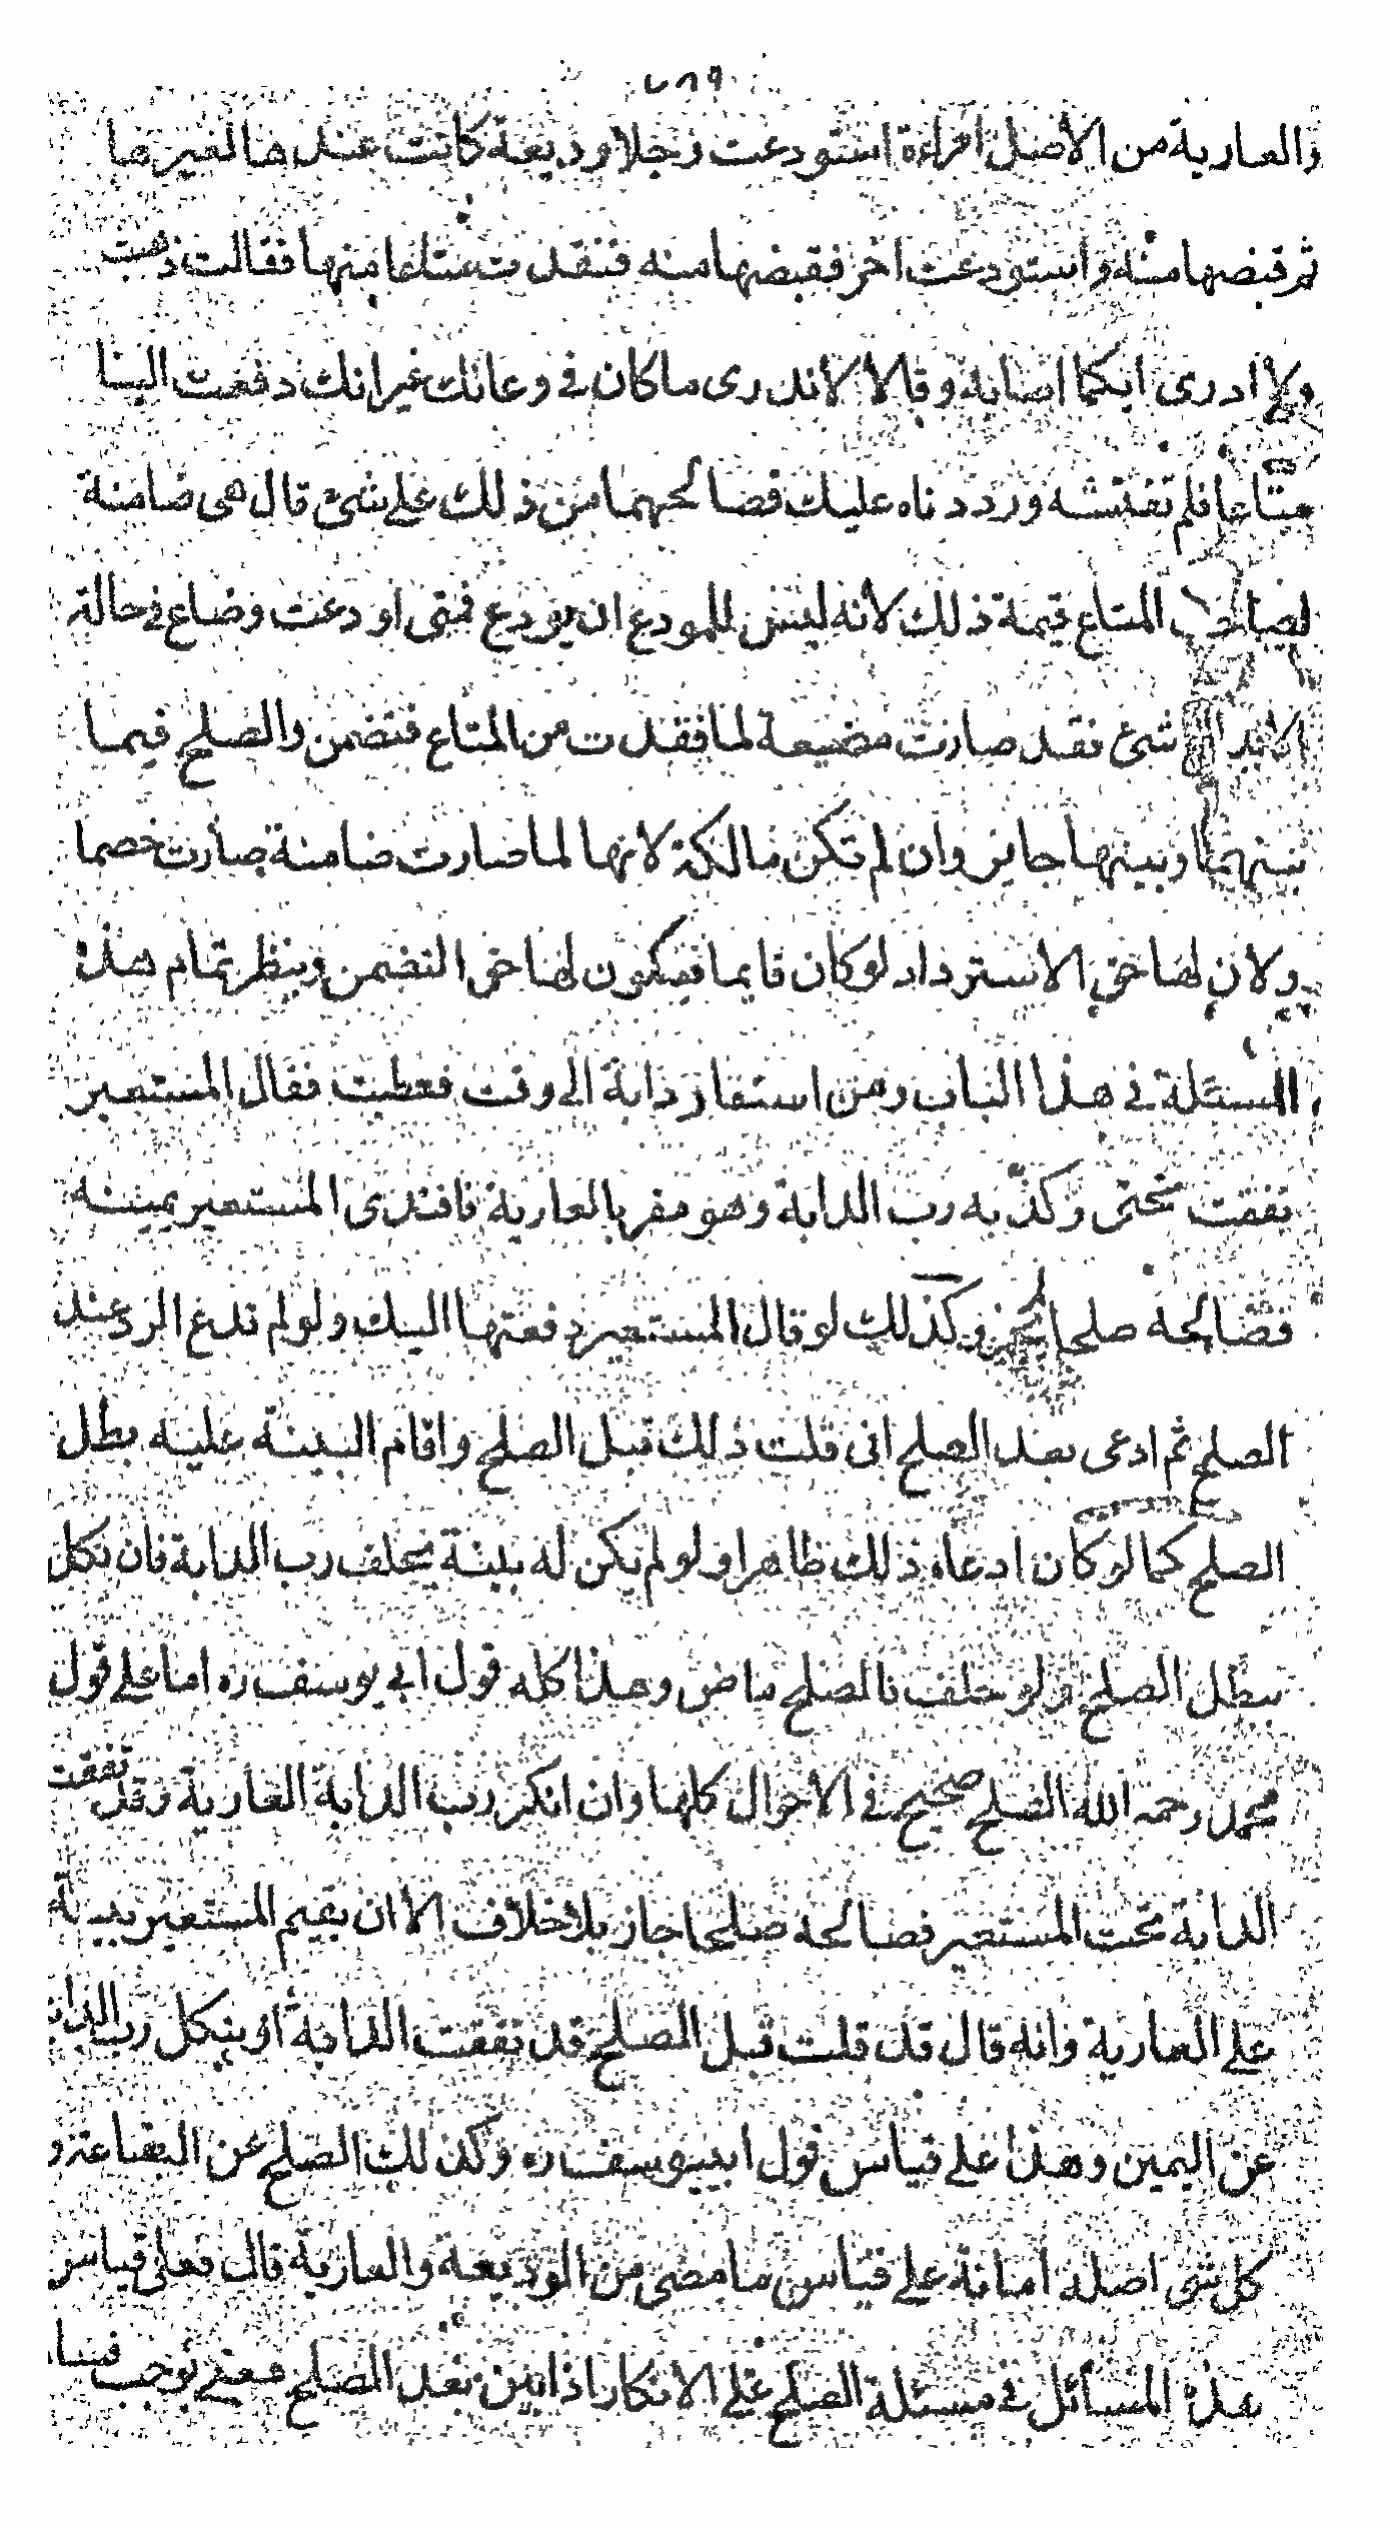 والعارية من الأصل امراءة استودعت رجلا وديعة كانت عندها لغيرها
ثم قبضها منه واستودعت اخر فقبضها منه ففقدت متاعا منها فقالت ذهبت
ولا ادرى ايكما اصابه وقالا لا ندرى ما كان فى وعائك غير انك دفعت الينا
متاعا فلم تفتشه ورددناه عليك فصالحهما من ذلك على شئ قال هى ضامنة
لصاحب المتاع قيمة ذلك لأنه ليس للمودع ان يودع فمتى اودعت وضاع فى حالة
شئ فقد صارت مضيعة لما فقدت من المتاع فتضمن والصلح فيما
بينهما وبينها جايز وان لم تكن مالكة لانها لما صارت ضامنة صارت خصما
ولان لها حق الاسترداد لو كان قايما فيكون لها حق التضمن وينظر تمام هذه
المسئلة فى هذا الباب ومن استعار دابة الى وقت فعطبت فقال المستعير
نفقت تحتى وكذبه رب الدابة وهو مقر بالعارية فافتدى المستعير يمينه
فصالحه صلحا لم يجز وكذلك لو قال المستعير دفعتها اليك ولو لم تدع الرد عند
الصلح ثم ادعى بعد الصلح انى قلت ذلك قبل الصلح واقام البينة عليه بطل
الصلح كما لو كان ادعاه ذلك ظاهرا ولو لم يكن له بينة يحلف رب الدابة فان نكل
بطل الصلح ولو حلف فالصلح ماض وهذا كله قول ابى يوسف ره اما على قول
محمد رحمه الله الصلح صحيح فى الاحوال كلها وان انكر رب الدابة العارية وقد نفقت
الدابة تحت المستعير فصالحه صلحا جاز بلا خلاف الا ان يقيم المستعير بينة
على العارية وانه قال قد قلت قبل الصلح قد نفقت الدابة او ينكل رب الدابة
عن اليمين وهذا على قياس قول ابييوسف ره وكذلك الصلح عن البضاعة و
كل شى اصله امانة على قياس ما مضى من الوديعة والعارية قال فعلى قياس
هذه المسائل فى مسئلة الصلح على الانكار اذا بعد الصلح